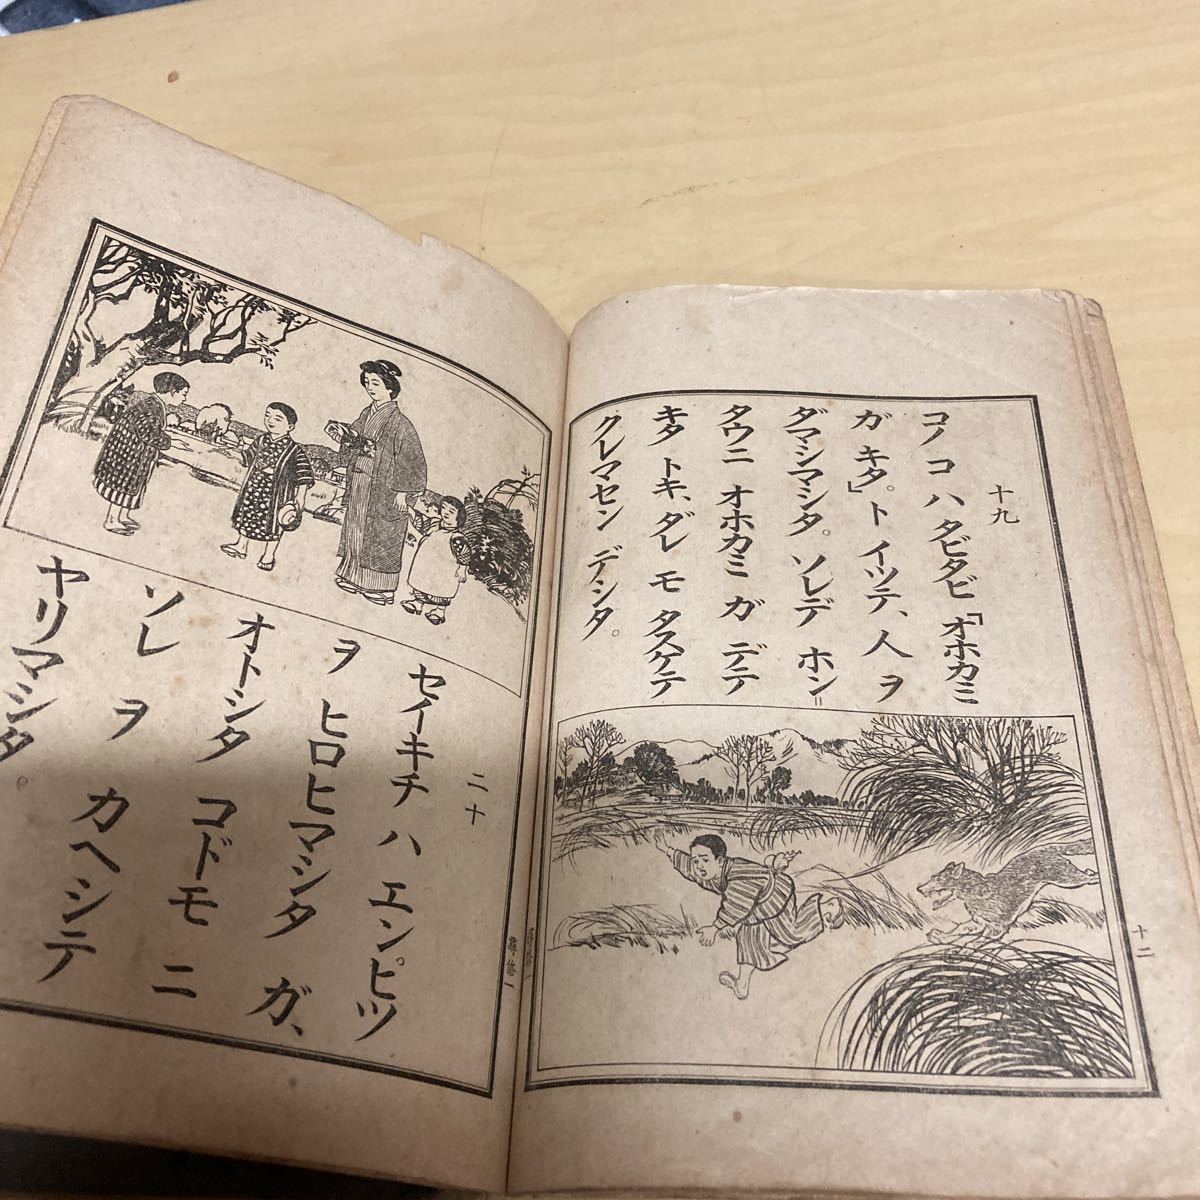 十九
コノ コ ハ タビタビ 「オホカミ
ガ キタ。」ト イツテ、人 ヲ
ダマシマシタ。ソレデ ホン＝
タウニ オホカミ ガ デテ
キタ トキ、ダレ モ タスケテ
クレマセン デシタ。
十二
尋修一
二十
セイキチ ハ エンピツ
ヲ ヒロヒマシタ ガ、
オトシタ コドモ ニ
ソレ ヲ カヘシテ
ヤリマシタ。
尋修一